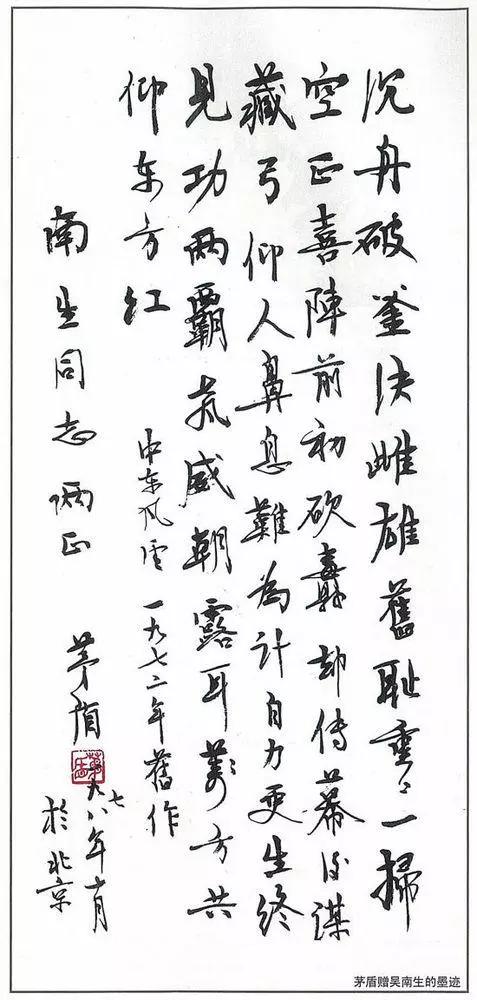 沉舟破釜决雌雄舊耻重〻一掃
空正喜陣前初砍纛却传幕後谋
藏弓仰人鼻息難為计自力更生终
見功兩霸炎威朝露耳萬方共
仰东方红
中东风雲 一九七二年舊作
南生同志兩正
茅盾
一九七八年十月
於北京
茅盾赠吴南生的墨迹